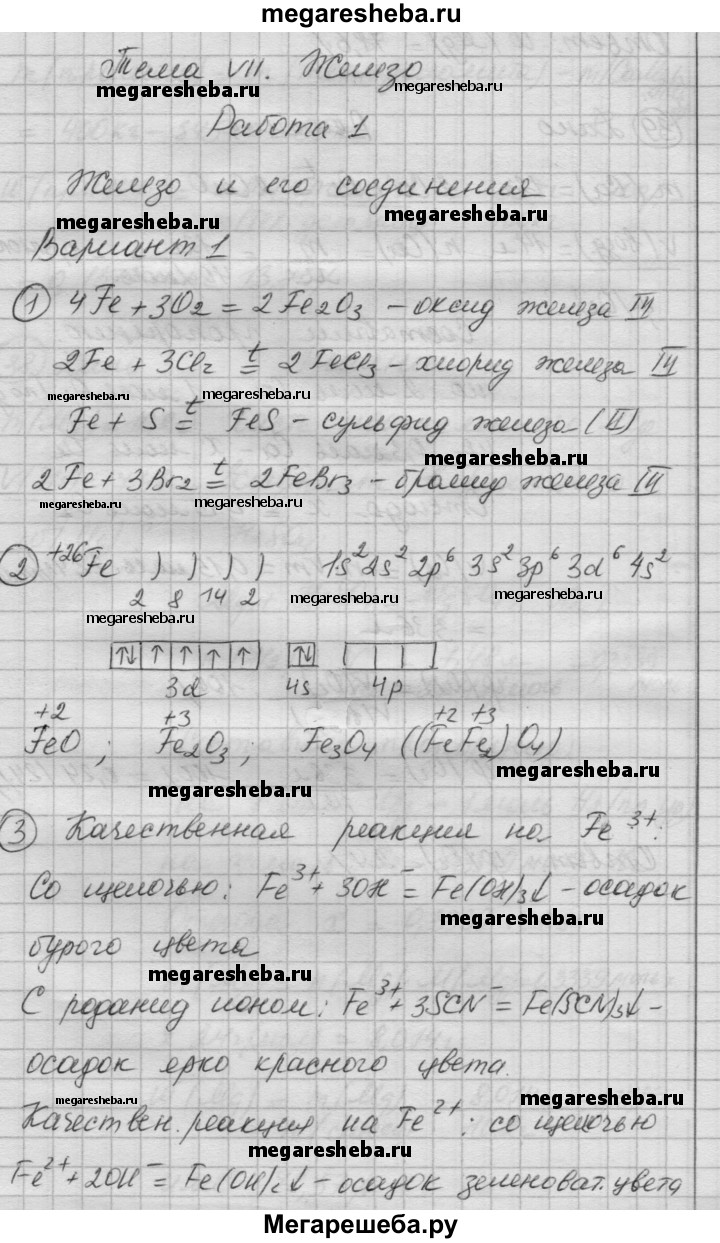 megaresheba.ru
Тема VII. Железо
megaresheba.ru megaresheba.ru
Работа 1
Железо и его соединения
megaresheba.ru megaresheba.ru
Вариант 1
① 4Fe + 3O₂ = 2Fe₂O₃ – оксид железа III
2Fe + 3Cl₂ =ᵗ 2FeCl₃ – хлорид железа III
megaresheba.ru megaresheba.ru
Fe + S =ᵗ FeS – сульфид железа (II)
megaresheba.ru
2Fe + 3Br₂ =ᵗ 2FeBr₃ – бромид железа III
megaresheba.ru megaresheba.ru
② +26Fe ) ) ) ) 1s² 2s² 2p⁶ 3s² 3p⁶ 3d⁶ 4s²
2 8 14 2 megaresheba.ru megaresheba.ru
megaresheba.ru
↑↓ ↑ ↑ ↑ ↑ ↑↓
3d 4s 4p
+2 +3 +2 +3
FeO ; Fe₂O₃ ; Fe₃O₄ ((FeFe₂)O₄)
megaresheba.ru
megaresheba.ru
③ Качественная реакция на Fe³⁺:
megaresheba.ru
Со щелочью: Fe³⁺ + 3OH⁻ = Fe(OH)₃↓ – осадок
megaresheba.ru
бурого цвета
megaresheba.ru
С роданид ионом: Fe³⁺ + 3SCN⁻ = Fe(SCN)₃↓ –
осадок ярко красного цвета.
megaresheba.ru megaresheba.ru
Качествен. реакция на Fe²⁺: со щелочью
megaresheba.ru
Fe²⁺ + 2OH⁻ = Fe(OH)₂↓ – осадок зеленоват. цвета
Мегарешеба.ру